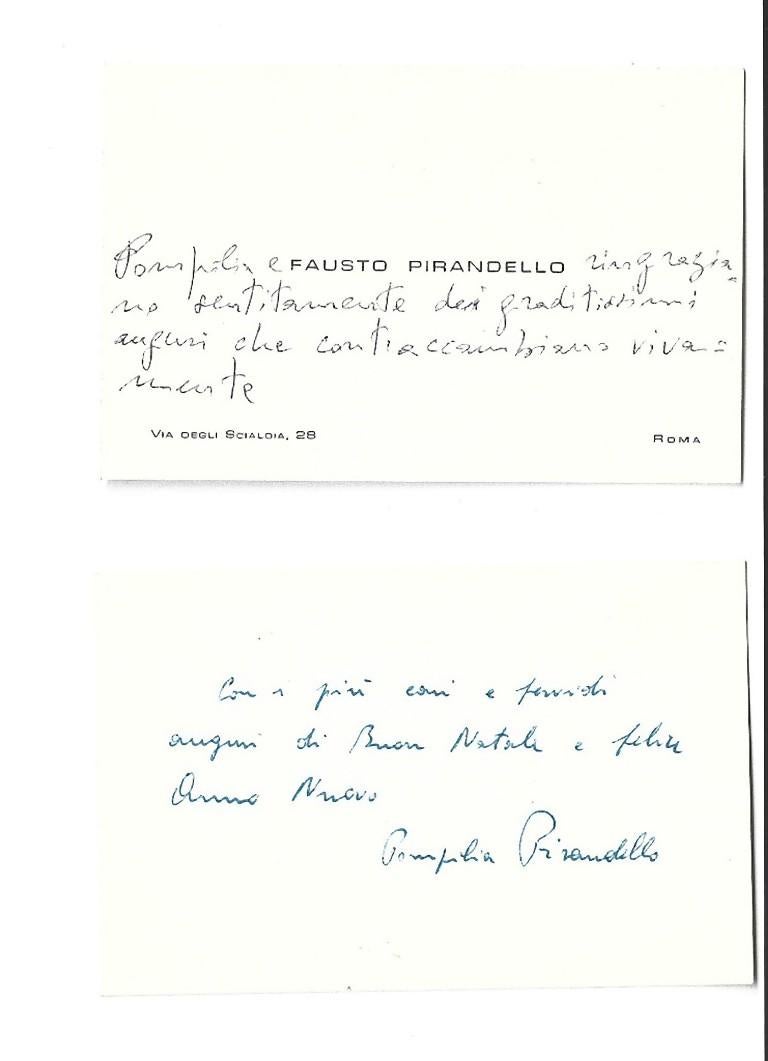 Pompilia e FAUSTO PIRANDELLO ringrazia-
no sentitamente dei graditissimi
auguri che contraccambiano viva=
mente
VIA DEGLI SCIALOIA, 28 ROMA
Con i più cari e fervidi
auguri di Buon Natale e felice
Anno Nuovo
Pompilia Pirandello